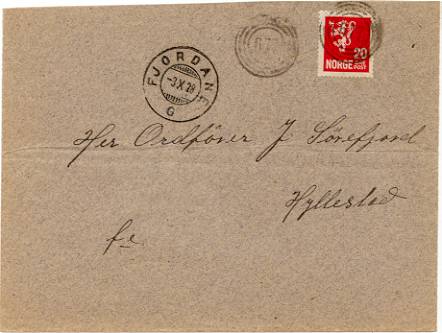 FJORDANE
-3 X 28
G
20
NORGE POST
Her Ordfører J. Sørefjord
Hyllestad
fr.